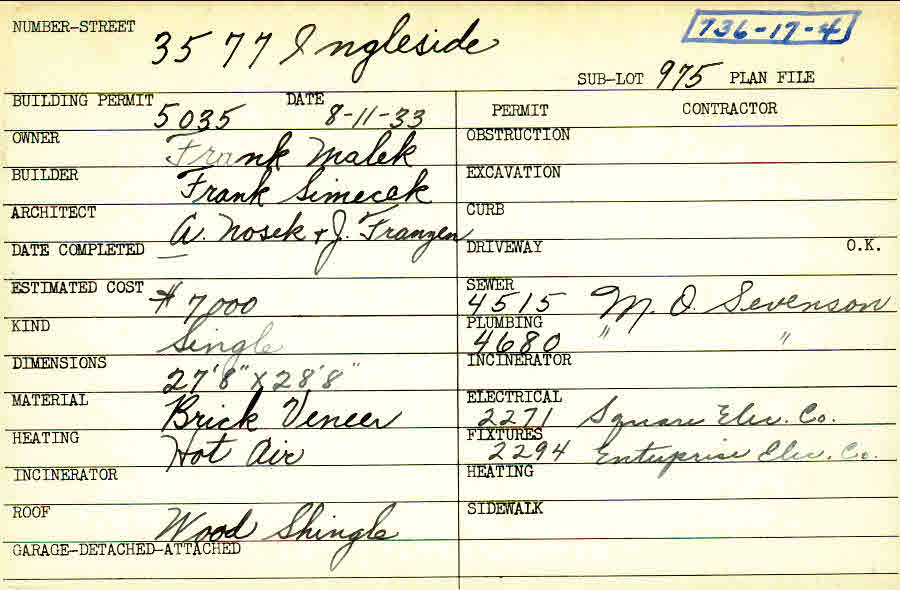 NUMBER-STREET 3577 Ingleside
736-17-4
SUB-LOT 975 PLAN FILE
BUILDING PERMIT 5035 DATE 8-11-33
OWNER Frank Malek
BUILDER Frank Simecek
ARCHITECT A. Nosek & J. Franzen
DATE COMPLETED —
ESTIMATED COST $7000
KIND Single
DIMENSIONS 27'8" X 28'8"
MATERIAL Brick Veneer
HEATING Hot Air
INCINERATOR
ROOF Wood Shingle
GARAGE-DETACHED-ATTACHED
PERMIT CONTRACTOR
OBSTRUCTION
EXCAVATION
CURB
DRIVEWAY O.K.
SEWER 4515 M. O. Sevenson
PLUMBING 4680 " "
INCINERATOR
ELECTRICAL 2271 Square Elec. Co.
FIXTURES 2294 Enterprise Elec. Co.
HEATING
SIDEWALK